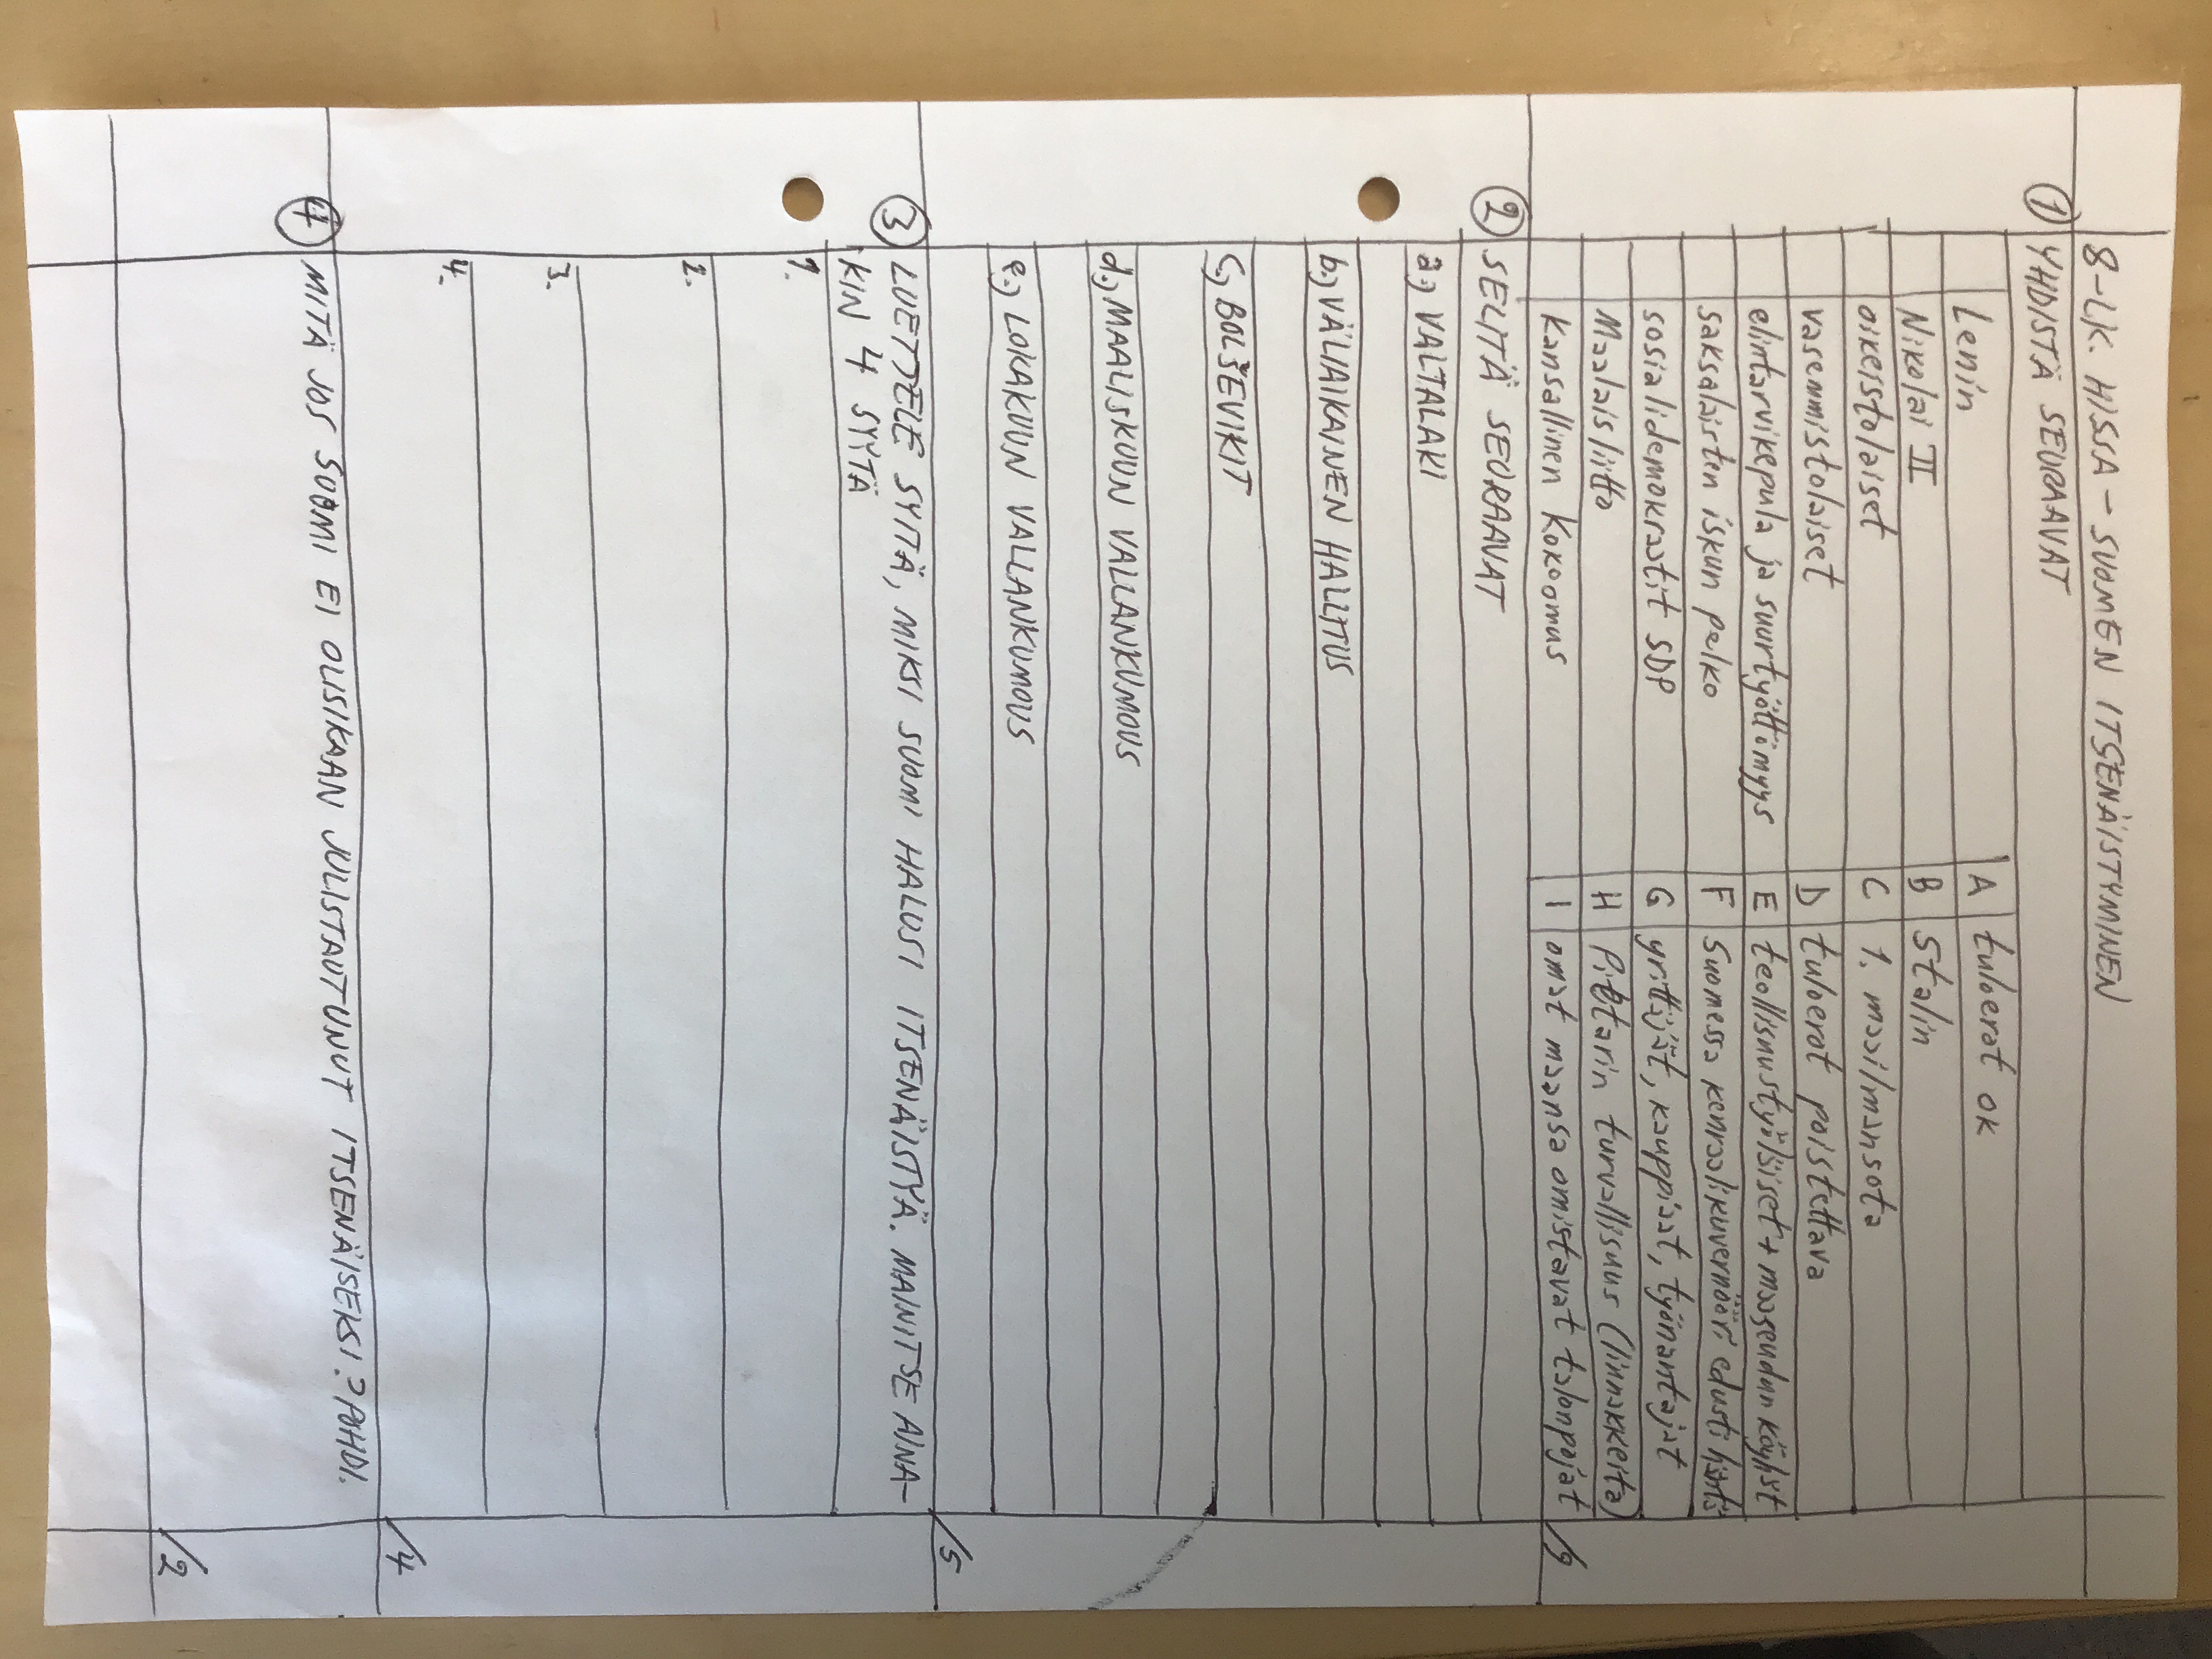 8-LK. HISSA - SUOMEN ITSENÄISTYMINEN
① YHDISTÄ SEURAAVAT
Lenin A tuloerot OK
Nikolai II B Stalin
oikeistolaiset C 1. maailmansota
vasemmistolaiset D tuloerot poistettava
elintarvikepula ja suurtyöttömyys E teollisuustyöläiset + maaseudun köyhät
saksalaisten iskun pelko F Suomessa kenraalikuvernööri edusti häntä
sosialidemokraatit SDP G yrittäjät, kauppiaat, työnantajat
Maalaisliitto H Pietarin turvallisuus (linnakkeita)
Kansallinen Kokoomus I omat maansa omistavat talonpojat
/9
② SELITÄ SEURAAVAT
a.) VALTALAKI
b.) VÄLIAIKAINEN HALLITUS
c.) BOLŠEVIKIT
d.) MAALISKUUN VALLANKUMOUS
e.) LOKAKUUN VALLANKUMOUS
/5
③ LUETTELE SYITÄ, MIKSI SUOMI HALUSI ITSENÄISTYÄ. MAINITSE AINA-
KIN 4 SYYTÄ
1.
2.
3.
4.
/4
④ MITÄ JOS SUOMI EI OLISIKAAN JULISTAUTUNUT ITSENÄISEKSI? POHDI.
/2